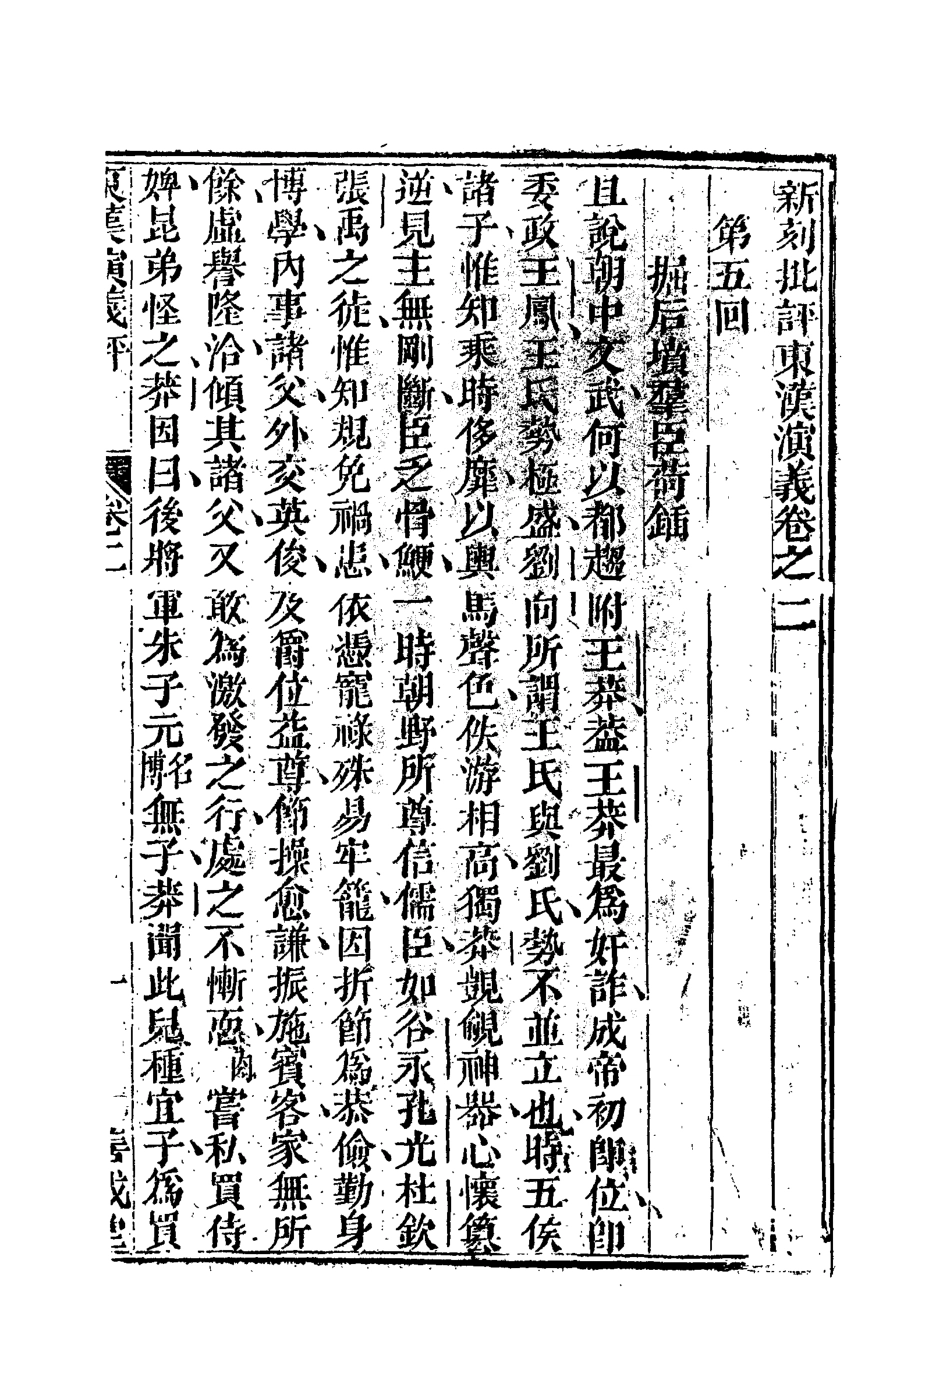 新刻批評東漢演義卷之二
第五回
掘后墳羣臣荷鍤
且說朝中文武何以都趨附王莽葢王莽最爲奸詐成帝初卽位卽
委政王鳳王氏勢極盛劉向所謂王氏與劉氏勢不並立也時五侯
諸子惟知乘時侈靡以輿馬聲色佚游相高獨莽覬覦神器心懷簒
逆見主無剛斷臣乏骨鯁一時朝野所尊信儒臣如谷永孔光杜欽
張禹之徒惟知規免禍患依憑寵祿殊易牢籠因折節爲恭儉勤身
博學內事諸父外交英俊及爵位益尊節操愈謙振施賓客家無所
餘虛譽隆洽傾其諸父又敢爲激發之行處之不慚恧 嘗私買侍
婢昆弟怪之莽因曰後將軍朱子元名博無子莽聞此兒種宜子爲買
東漢演義評 卷二 一 善成堂